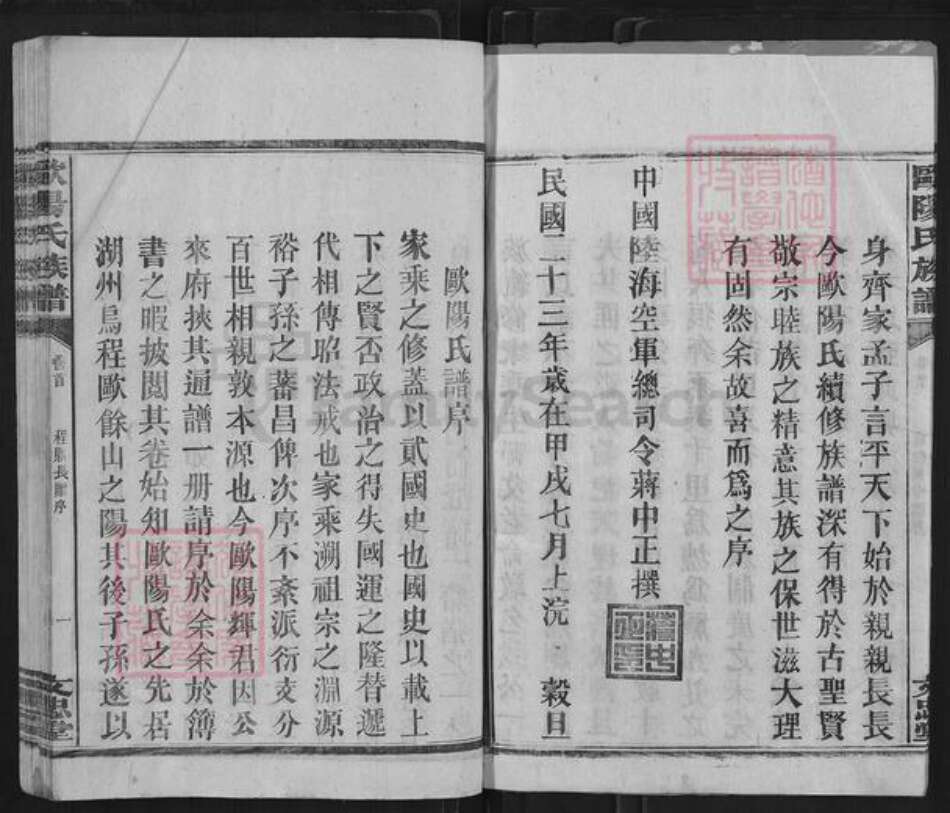 歐陽氏族譜
身齊家孟子言平天下始於親親長長
今歐陽氏續修族譜深有得於古聖賢
敬宗睦族之精意其族之保世滋大理
有固然余故喜而爲之序
中國陸海空軍總司令蔣中正撰
民國二十三年歲在甲戌七月上浣 穀旦
歐陽氏譜序
家乘之修蓋以貳國史也國史以載上
下之賢否政治之得失國運之隆替遞
代相傳昭法戒也家乘溯祖宗之淵源
裕子孫之蕃昌俾次序不紊派衍支分
百世相親敦本源也今歐陽輝君因公
來府挾其通譜一册請序於余余於簿
書之暇披閱其卷始知歐陽氏之先居
湖州烏程歐餘山之陽其後子孫遂以
歐陽氏族譜
卷首
程縣長譜序
一
文忠堂
FamilySearch